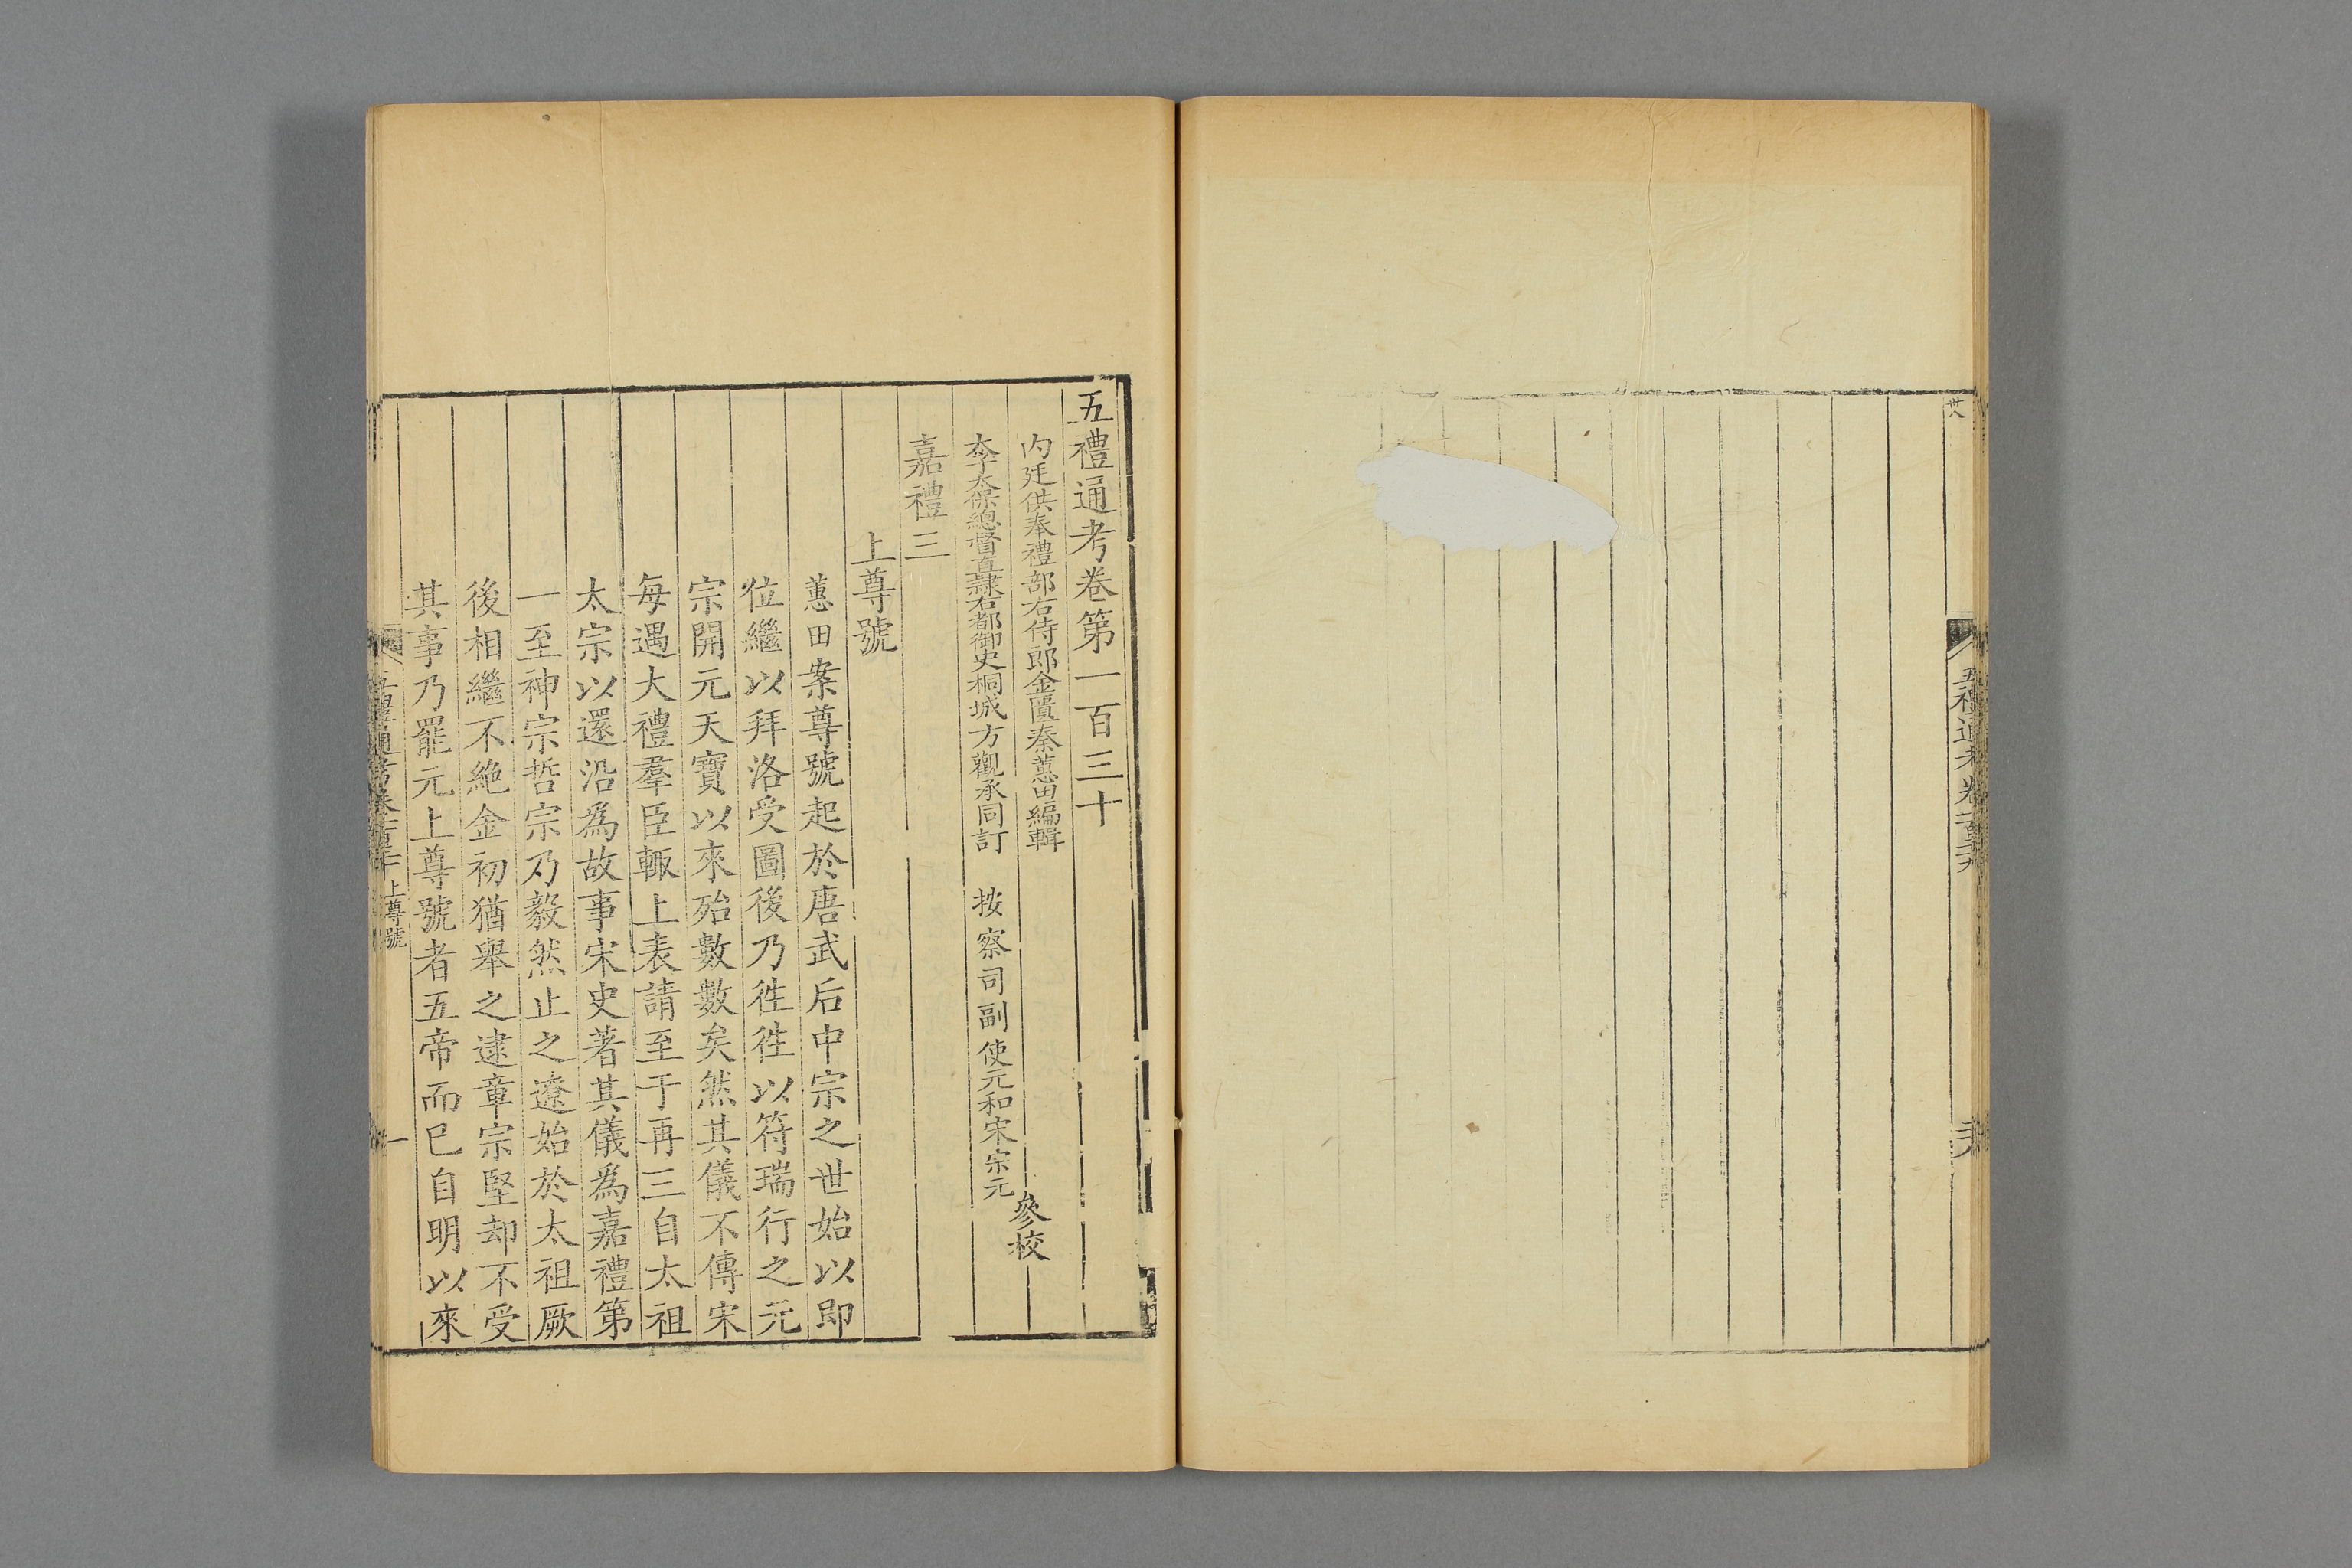 五禮通考卷第一百三十
内廷供奉禮部右侍郎金匱秦蕙田編輯
太子太保總督直隸右都御史桐城方觀承同訂　按察司副使元和宋宗元
參校
嘉禮三
上尊號
蕙田案尊號起於唐武后中宗之世始以即
位繼以拜洛受圖後乃徃徃以符瑞行之元
宗開元天寶以來殆數數矣然其儀不傳宋
每遇大禮羣臣輙上表請至于再三自太祖
太宗以還沿為故事宋史著其儀為嘉禮第
一至神宗哲宗乃毅然止之遼始於太祖厥
後相繼不絶金初猶舉之逮章宗堅却不受
其事乃罷元上尊號者五帝而已自明以來
五禮通考卷一百三十　上尊號
一
卅八
五禮通考卷一百二十九